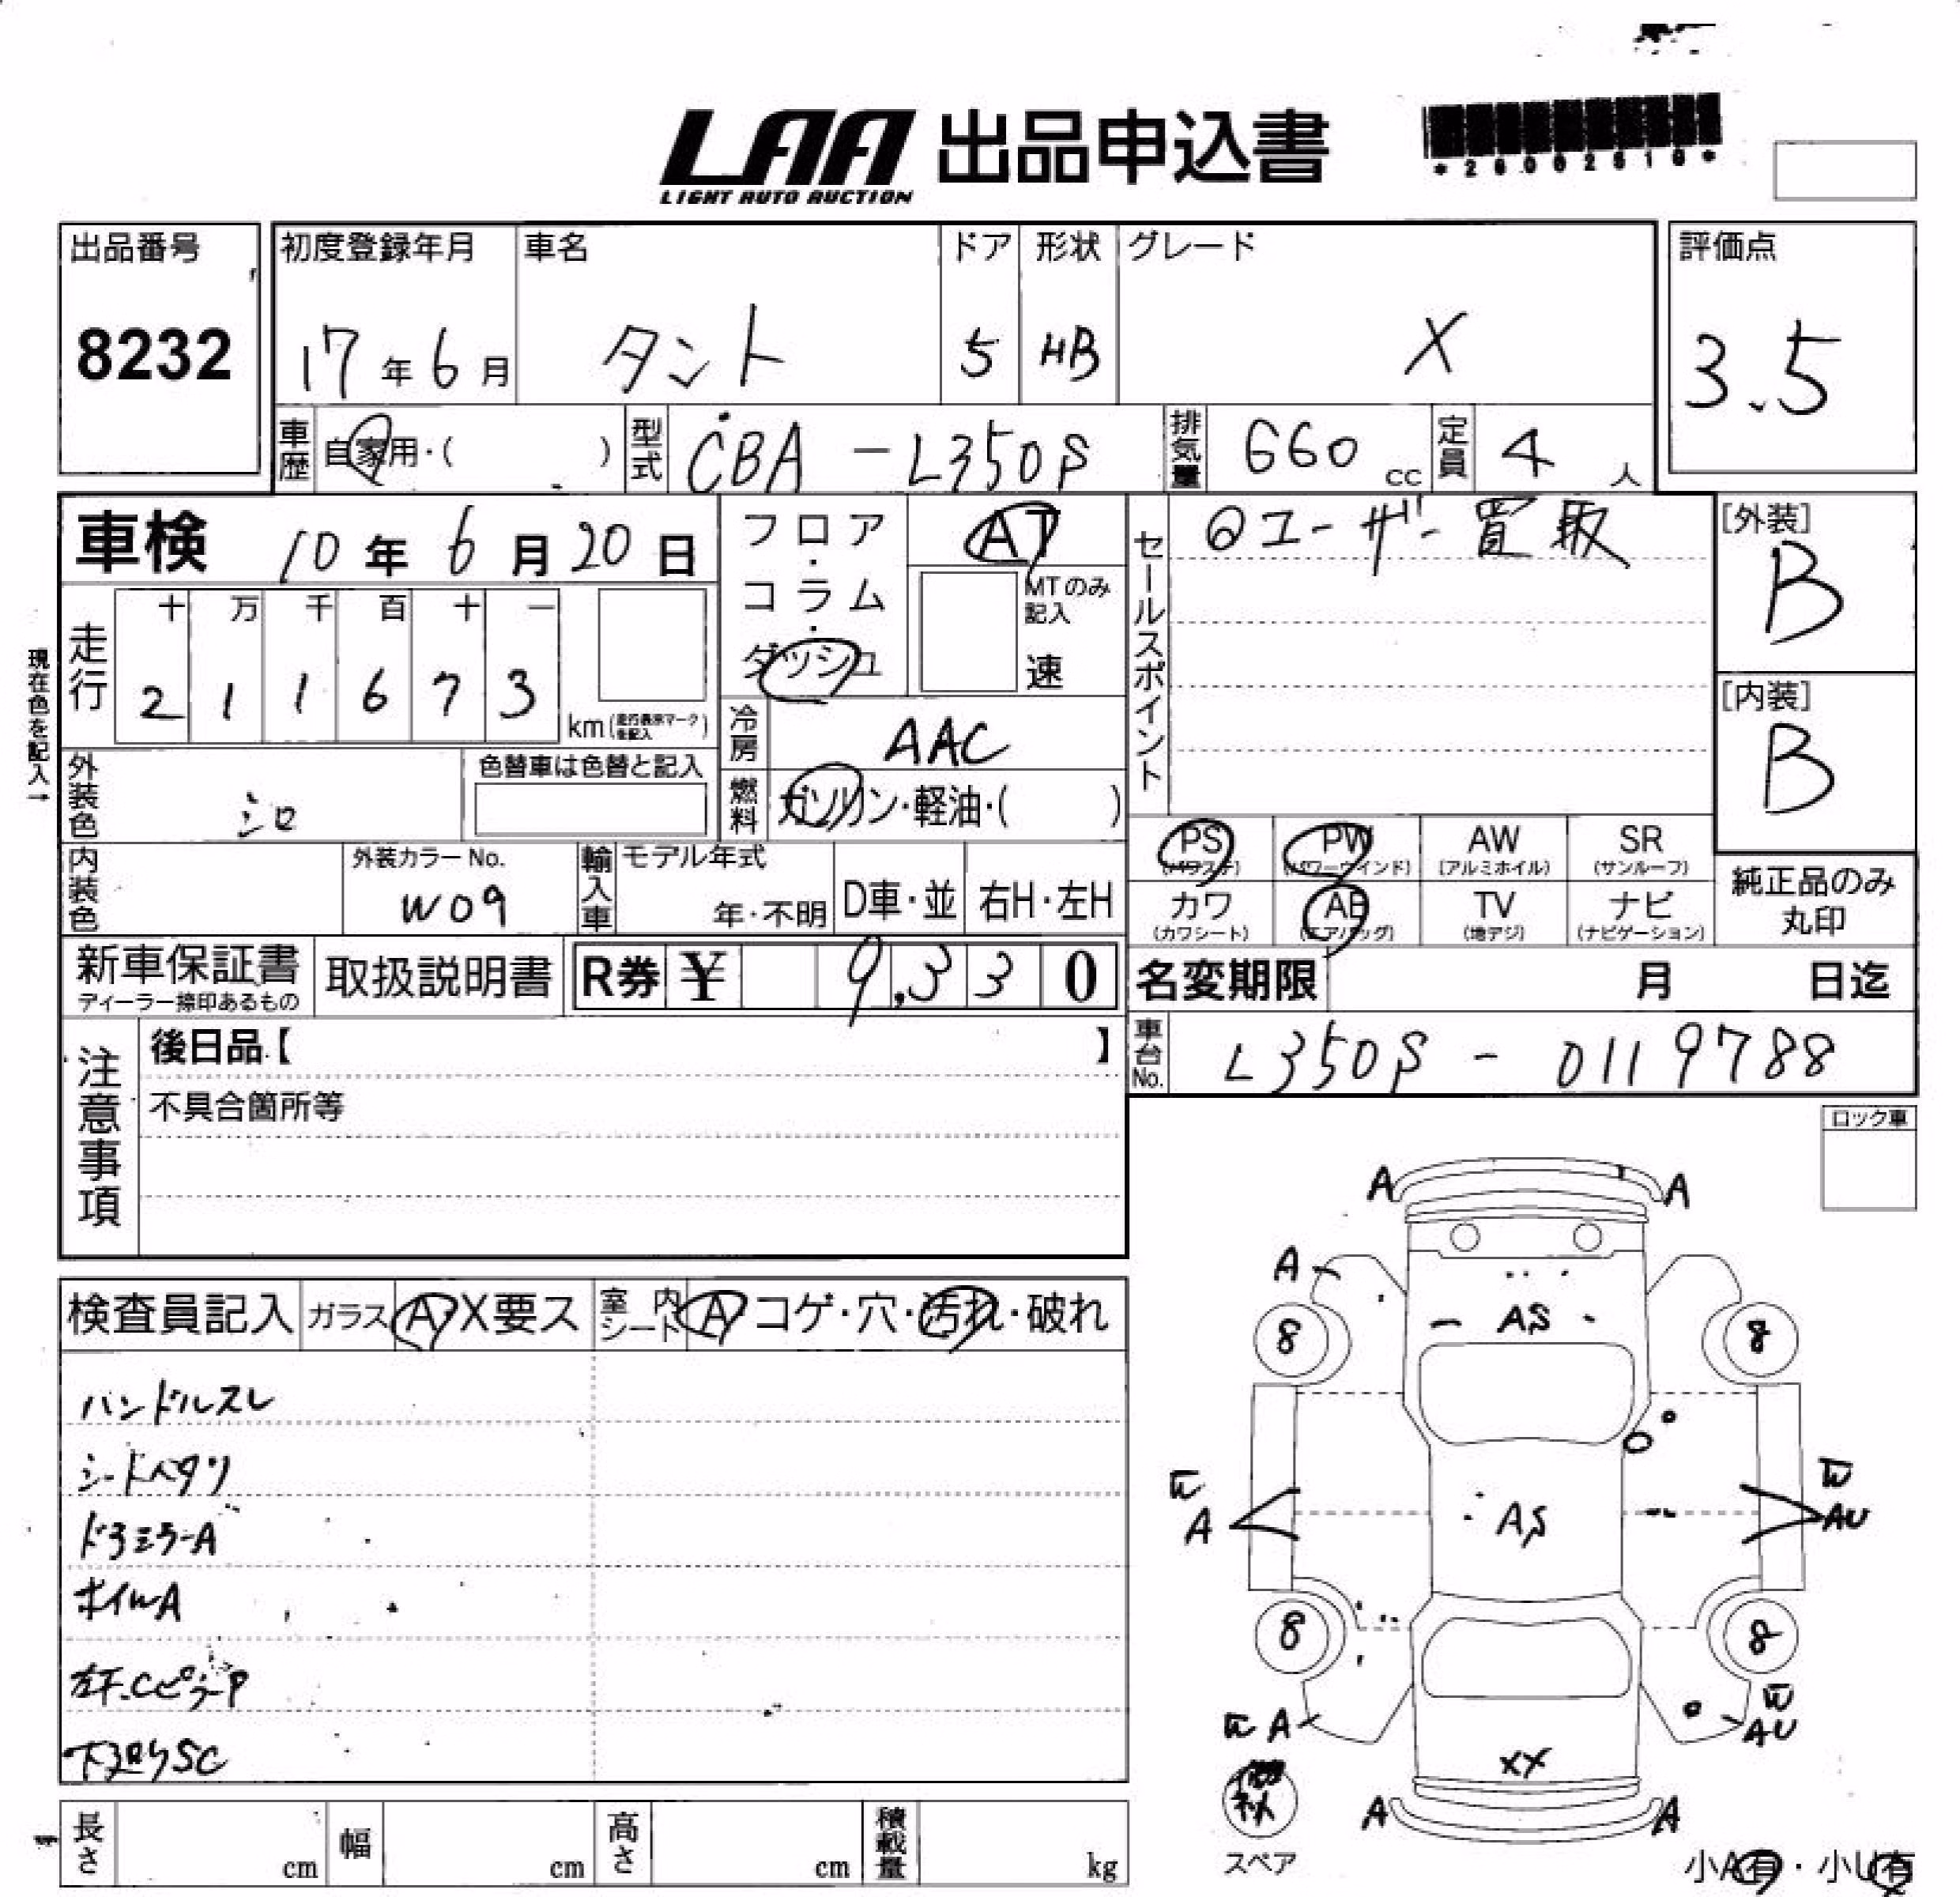 LAA 出品申込書
LIGHT AUTO AUCTION
出品番号
8232
初度登録年月
17年6月
車名
タント
ドア
5
形状
HB
グレード
X
評価点
3.5
車歴
自家用・( )
型式
CBA-L350S
排気量
660 cc
定員
4 人
車検 10年6月20日
走行
十 万 千 百 十 一
2 1 1 6 7 3
km(走行表示マークを記入)
フロア・コラム・ダッシュ
AT
MTのみ記入
速
冷房
AAC
燃料
ガソリン・軽油・( )
現在色を記入→
外装色
シロ
色替車は色替と記入
内装色
外装カラーNo.
W09
輸入車
モデル年式
年・不明
D車・並
右H・左H
セールスポイント
◎ユーザー買取
[外装]
B
[内装]
B
PS
(パワステ)
PW
(パワーウインド)
AW
(アルミホイル)
SR
(サンルーフ)
カワ
(カワシート)
AB
(エアバッグ)
TV
(地デジ)
ナビ
(ナビゲーション)
純正品のみ
丸印
新車保証書
ディーラー捺印あるもの
取扱説明書
R券 ¥ 9,330
名変期限 月 日迄
車台No.
L350S-0119788
注意事項
後日品【 】
不具合箇所等
ロック車
検査員記入
ガラス A X要ス
室内シート A コゲ・穴・汚れ・破れ
ハンドルスレ
シートヘタリ
ドアミラーA
ホイルA
左下.CピラーP
下廻りSC
A A
A
AS
8 8
W
A
AS
W
AU
8 8
W A
W
AU
XX
A A
スペア
小A有・小U有
長さ cm
幅 cm
高さ cm
積載量 kg